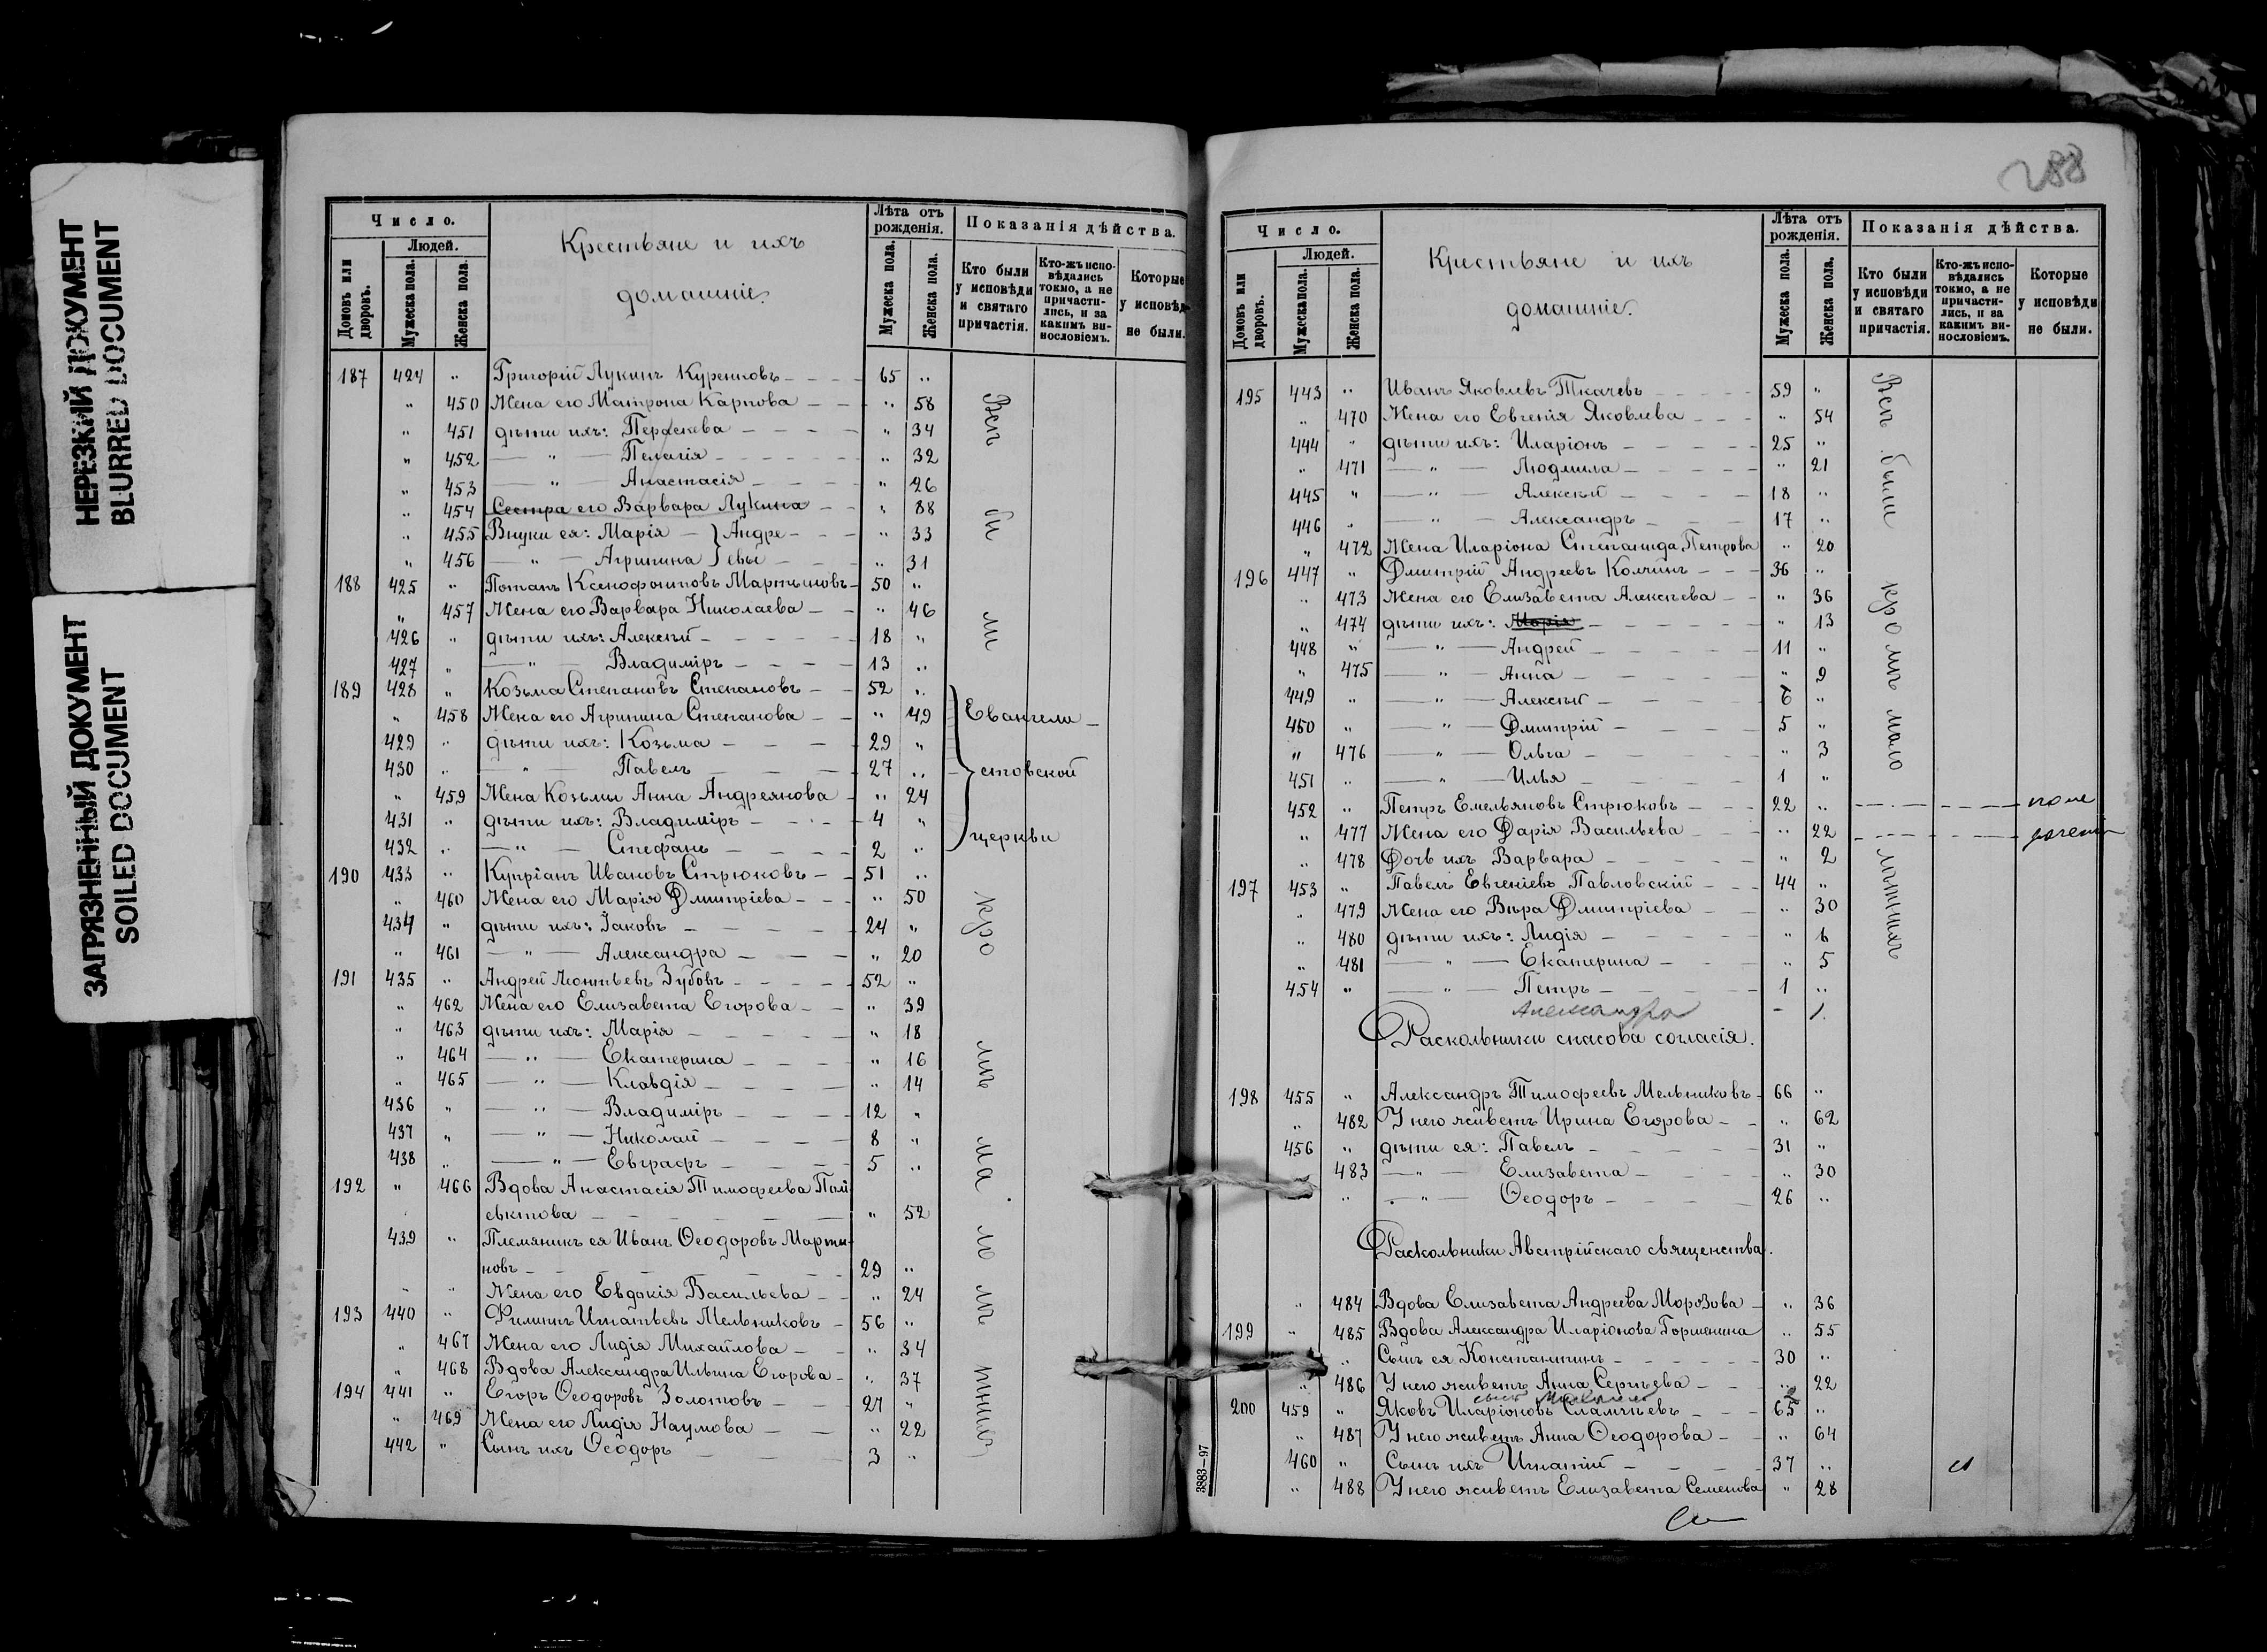 НЕРЕЗКИЙ ДОКУМЕНТ
BLURRED DOCUMENT
ЗАГРЯЗНЕННЫЙ ДОКУМЕНТ
SOILED DOCUMENT
Число.
Людей.
Домовъ или дворовъ.
Мужеска пола.
Женска пола.
Крестьяне и ихъ
домашніе.
Лѣта отъ рожденія.
Мужеска пола.
Женска пола.
Показанія дѣйства.
Кто были у исповѣди и святаго причастія.
Кто-жъ исповѣдались токмо, а не причастились, и за какимъ винословіемъ.
Которые у исповѣди не были.
187 424 " Григорій Лукинъ Куренковъ 65 "
" 450 Жена его Матрона Карпова " 58
" 451 дѣти ихъ: Параскева " 34
" 452 — " — Пелагія " 32
" 453 — " — Анастасія " 26
" 454 Сестра его Варвара Лукина " 88
" 455 Внуки ея: Марія } Андре- " 33
" 456 — " — Агрипина } евы " 31
188 425 " Потапъ Ксенофонтовъ Мартыновъ 50 "
" 457 Жена его Варвара Николаева " 46
426 " дѣти ихъ: Алексѣй 18 "
427 " — " — Владиміръ 13 "
189 428 " Козьма Степановъ Степановъ 52 "
" 458 Жена его Агрипина Степанова " 49
429 " дѣти ихъ: Козьма 29 "
430 " — " — Павелъ 27 "
" 459 Жена Козьмы Анна Андреянова " 24
431 " дѣти ихъ: Владиміръ 4 "
432 " — " — Стефанъ 2 "
190 433 " Купріанъ Ивановъ Стрюковъ 51 "
" 460 Жена его Марія Дмитріева " 50
434 " дѣти ихъ: Іаковъ 24 "
" 461 — " — Александра " 20
191 435 " Андрей Леонтьевъ Зубовъ 52 "
" 462 Жена его Елизавета Егорова " 39
" 463 дѣти ихъ: Марія " 18
" 464 — " — Екатерина " 16
" 465 — " — Клавдія " 14
436 " — " — Владиміръ 12 "
437 " — " — Николай 8 "
438 " — " — Евграфъ 5 "
192 " 466 Вдова Анастасія Тимофеева Поли
евктова " 52
439 " Племяникъ ея Иванъ Ѳеодоровъ Марты-
новъ 29 "
" " Жена его Евдокія Васильева " 24
193 440 " Филипъ Игнатьевъ Мельниковъ 56 "
" 467 Жена его Лидія Михайлова " 34
" 468 Вдова Александра Ильина Егорова " 37
194 441 " Егоръ Ѳеодоровъ Золотовъ 27 "
" 469 Жена его Лидія Наумова " 22
442 " Сынъ ихъ Ѳеодоръ 3 "
Всѣ бы ли кро мѣ ма ло лѣ тнихъ
Евангели-
стовской
церкви
288
Число.
Людей.
Домовъ или дворовъ.
Мужеска пола.
Женска пола.
Крестьяне и ихъ
домашніе.
Лѣта отъ рожденія.
Мужеска пола.
Женска пола.
Показанія дѣйства.
Кто были у исповѣди и святаго причастія.
Кто-жъ исповѣдались токмо, а не причастились, и за какимъ винословіемъ.
Которые у исповѣди не были.
195 443 " Иванъ Яковлевъ Ткачевъ 59 "
" 470 Жена его Евгенія Яковлева " 54
444 " дѣти ихъ: Иларіонъ 25 "
" 471 — " — Людмила " 21
445 " — " — Алексѣй 18 "
446 " — " — Александръ 17 "
" 472 Жена Иларіона Степанида Петрова " 20
196 447 " Дмитрій Андреевъ Колчинъ 36 "
" 473 Жена его Елизавета Алексѣева " 36
" 474 дѣти ихъ: Марія " 13
448 " — " — Андрей 11 "
" 475 — " — Анна " 9
449 " — " — Алексѣй 6 "
450 " — " — Дмитрій 5 "
" 476 — " — Ольга " 3
451 " — " — Илья 1 "
452 " Петръ Емельяновъ Стрюковъ 22 "
" 477 Жена его Дарія Васильева " 22
" 478 Дочь ихъ Варвара " 2
197 453 " Павелъ Евгеніевъ Павловскій 44 "
" 479 Жена его Вѣра Дмитріева " 30
" 480 дѣти ихъ: Лидія " 6
" 481 — " — Екатерина " 5
454 " — " — Петръ 1 "
Александра - 1.
Всѣ были кро мѣ мало лѣтнихъ
Раскольники спасова согласія.
198 455 " Александръ Тимофеевъ Мельниковъ 66 "
" 482 У него живетъ Ирина Егорова " 62
456 " дѣти ея: Павелъ 31 "
483 — " — Елизавета " 30
" — " — Ѳеодоръ 26 "
Раскольники Австрійскаго священства.
" 484 Вдова Елизавета Андреева Морозова " 36
199 " 485 Вдова Александра Иларіонова Горшенина " 55
" Сынъ ея Константинъ 30 "
" 486 У него живетъ Анна Сергѣева " 22
200 459 " Яковъ Иларіоновъ 65 "
" 487 У него живетъ Анна Ѳеодорова " 64
460 " Сынъ ихъ Игнатій 37 "
" 488 У него живетъ Елизавета Семенова " 28
3883—97